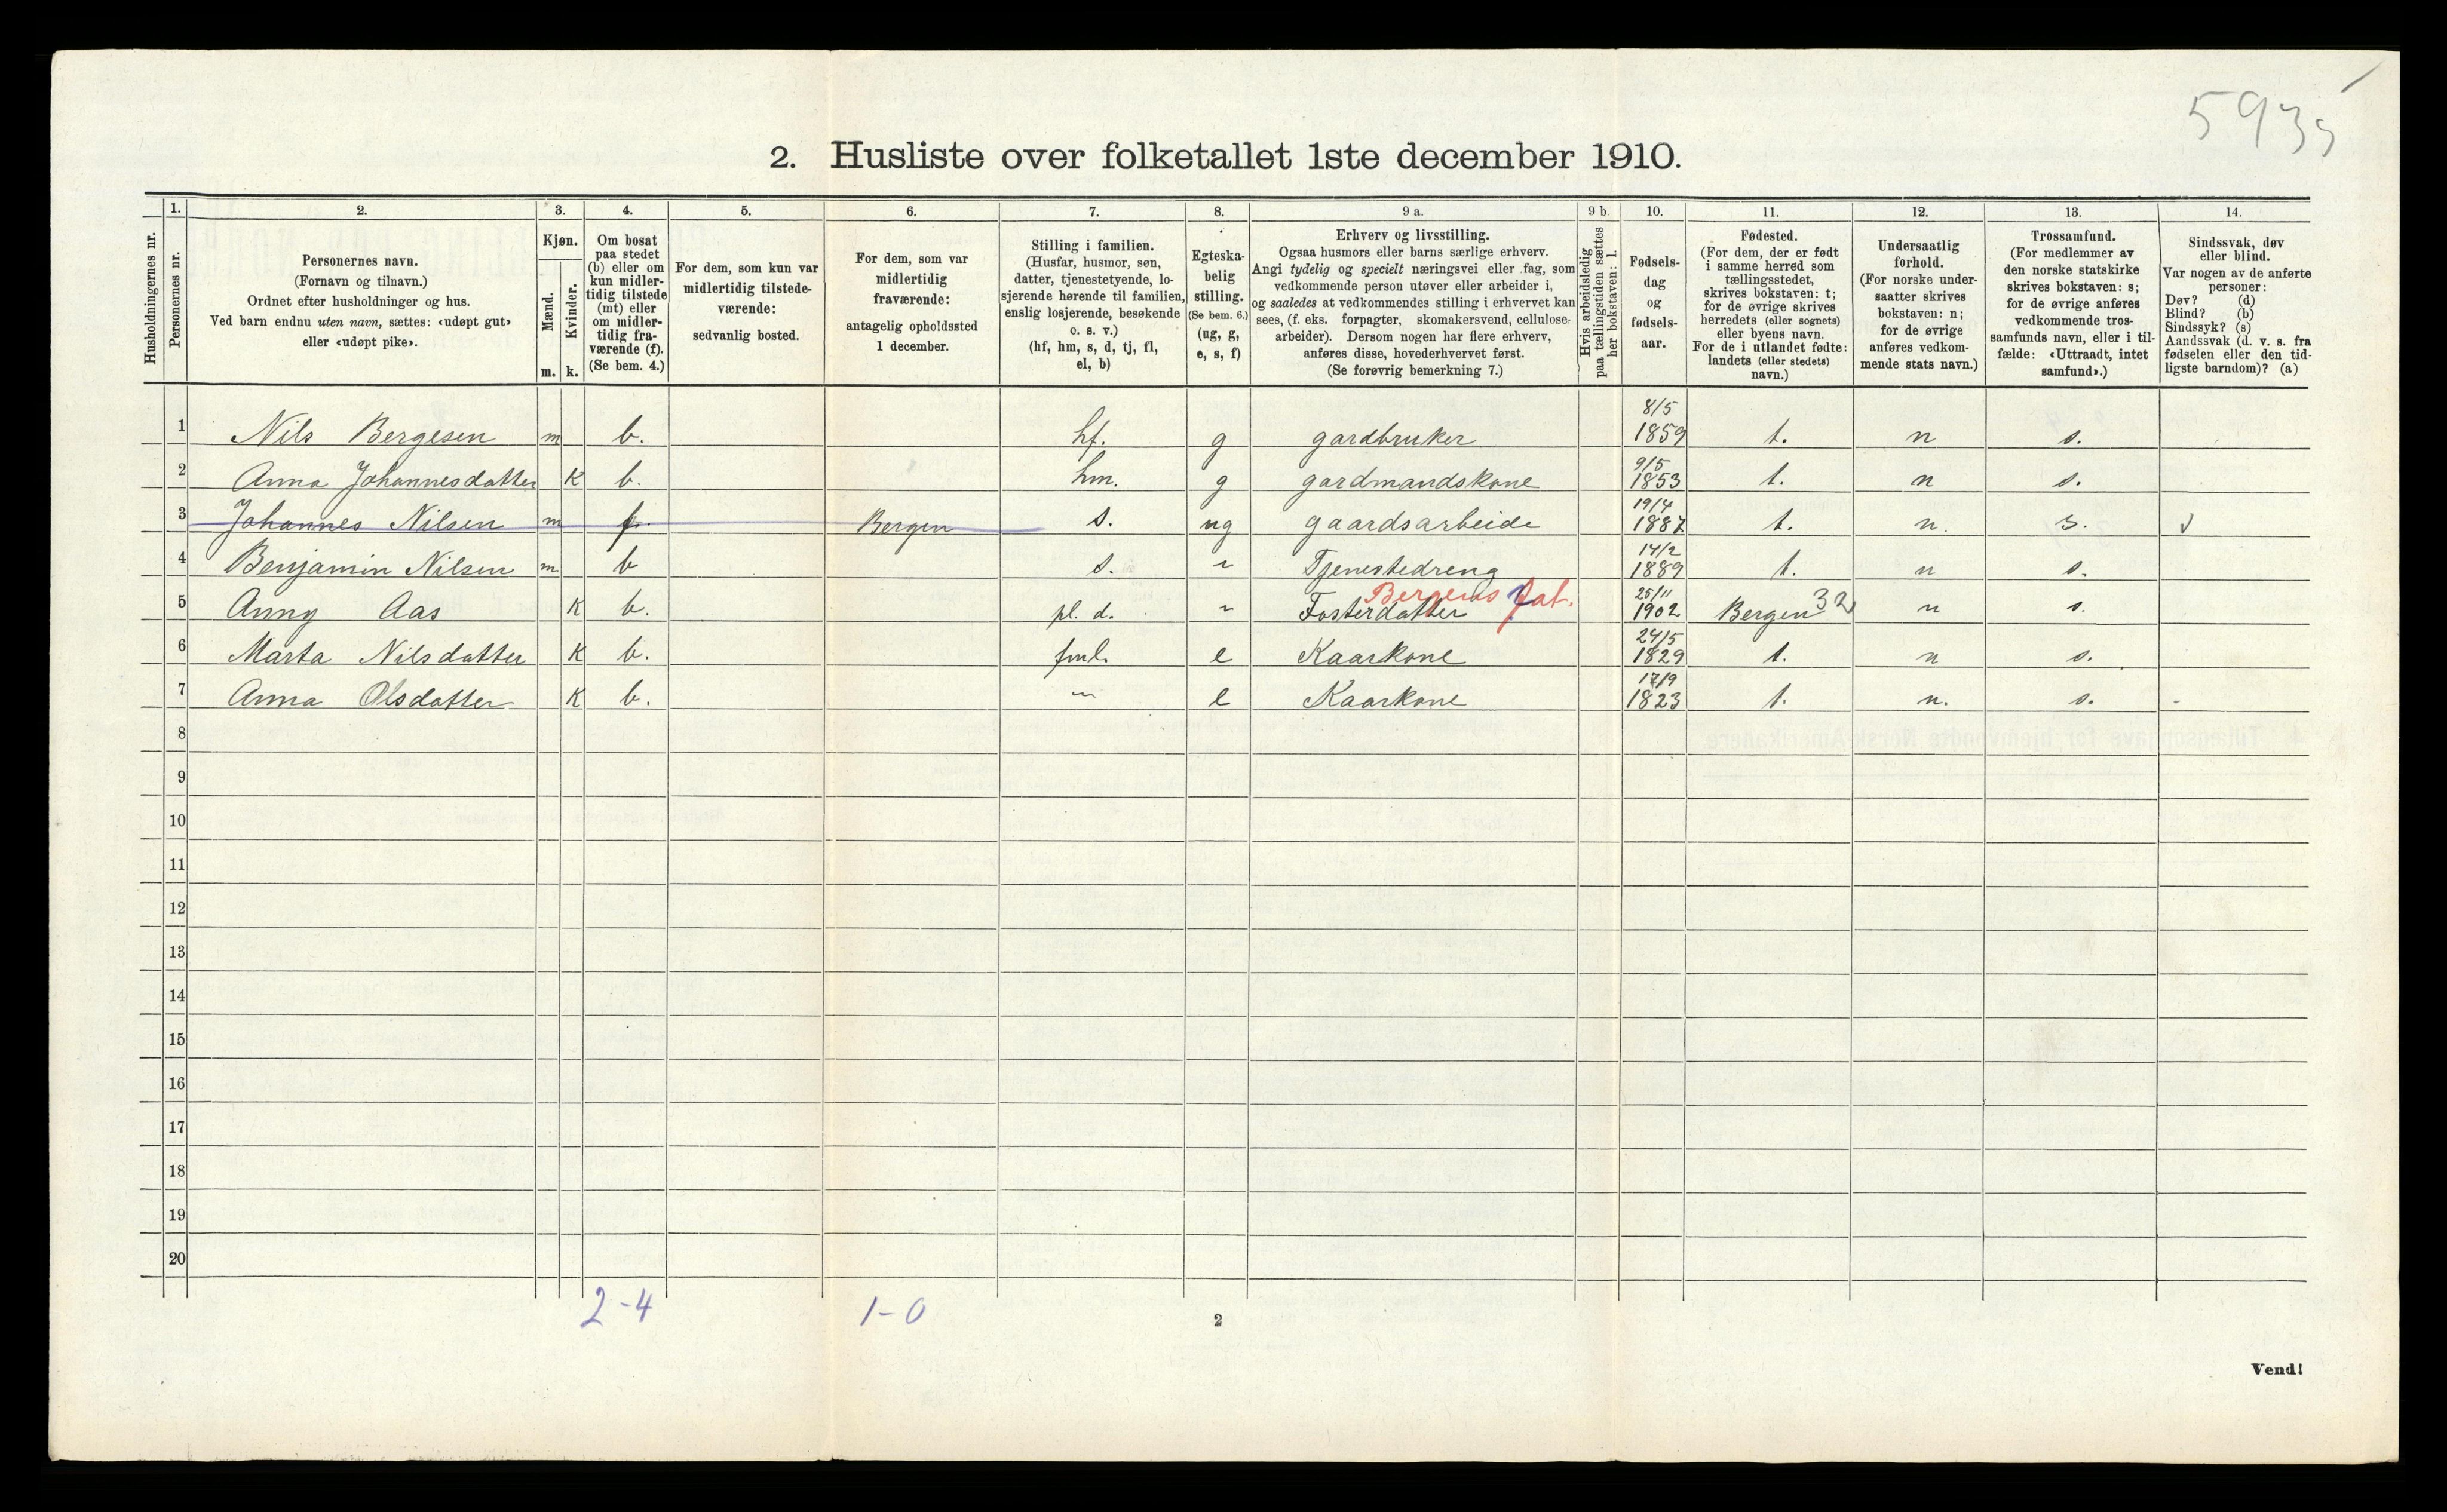 5935
2. Husliste over folketallet 1ste december 1910.
Husholdningernes nr.
1.
Personernes nr.
2.
Personernes navn.
(Fornavn og tilnavn.)
Ordnet efter husholdninger og hus.
Ved barn endnu uten navn, sættes: «udøpt gut»
eller «udøpt pike».
3.
Kjøn.
Mænd.
m.
Kvinder.
k.
4.
Om bosat
paa stedet
(b) eller om
kun midler-
tidig tilstede
(mt) eller
om midler-
tidig fra-
værende (f).
(Se bem. 4.)
5.
For dem, som kun var
midlertidig tilstede-
værende:
sedvanlig bosted.
6.
For dem, som var
midlertidig
fraværende:
antagelig opholdssted
1 december.
7.
Stilling i familien.
(Husfar, husmor, søn,
datter, tjenestetyende, lo-
sjerende hørende til familien,
enslig losjerende, besøkende
o. s. v.)
(hf, hm, s, d, tj, fl,
el, b)
8.
Egteska-
belig
stilling.
(Se bem. 6.)
(ug, g,
e, s, f)
9 a.
Erhverv og livsstilling.
Ogsaa husmors eller barns særlige erhverv.
Angi tydelig og specielt næringsvei eller fag, som
vedkommende person utøver eller arbeider i,
og saaledes at vedkommendes stilling i erhvervet kan
sees, (f. eks. forpagter, skomakersvend, cellulose-
arbeider). Dersom nogen har flere erhverv,
anføres disse, hovederhvervet først.
(Se forøvrig bemerkning 7.)
9 b.
Hvis arbeidsledig
paa tællingstiden sættes
her bokstaven: l.
10.
Fødsels-
dag
og
fødsels-
aar.
11.
Fødested.
(For dem, der er født
i samme herred som
tællingsstedet,
skrives bokstaven: t;
for de øvrige skrives
herredets (eller sognets)
eller byens navn.
For de i utlandet fødte:
landets (eller stedets)
navn.)
12.
Undersaatlig
forhold.
(For norske under-
saatter skrives
bokstaven: n;
for de øvrige
anføres vedkom-
mende stats navn.)
13.
Trossamfund.
(For medlemmer av
den norske statskirke
skrives bokstaven: s;
for de øvrige anføres
vedkommende tros-
samfunds navn, eller i til-
fælde: «Uttraadt, intet
samfund».)
14.
Sindssvak, døv
eller blind.
Var nogen av de anførte
personer:
Døv? (d)
Blind? (b)
Sindssyk? (s)
Aandssvak (d. v. s. fra
fødselen eller den tid-
ligste barndom)? (a)
1 Nils Bergesen m b. hf. g gardbruker 8/5 1859 t. n s.
2 Anna Johannesdatter K b. hm. g gardmandskone 9/5 1853 t. n s.
3 Johannes Nilsen m f. Bergen s. ug gaardsarbeide 19/4 1887 t. n. s.
4 Benjamin Nilsen m b s. " Tjenestedreng 14/2 1889 t. n s.
Bergens fat.
5 Anny Aas K b. pl. d. " Fosterdatter 25/11 1902 Bergen 32 n s.
6 Marta Nilsdatter K b. fml. e Kaarkone 24/5 1829 t. n s.
7 Anna Olsdatter K b. " e Kaarkone 17/9 1823 t. n. s. -
8
9
10
11
12
13
14
15
16
17
18
19
20
2-4 1-0
2
Vend!